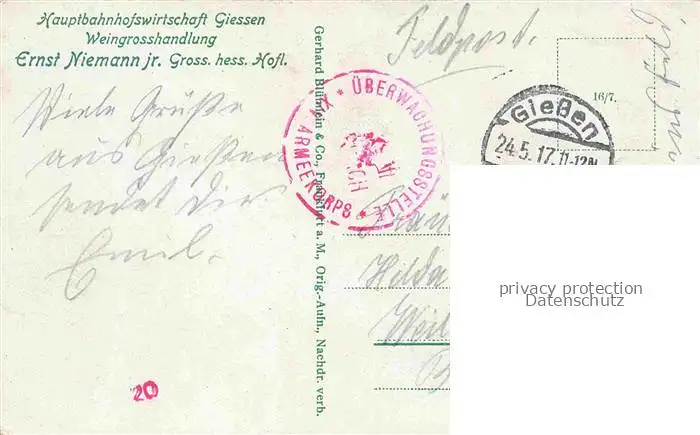 Hauptbahnhofswirtschaft Giessen
Weingrosshandlung
Ernst Niemann jr. Gross. hess. Hofl.
Viele Grüße
aus Gießen
sendet dir
Emil.
20
Gerhard Blümlein & Co., Frankfurt a. M., Orig.-Aufn., Nachdr. verb.
Feldpost.
ÜBERWACHUNGSSTELLE * XIX ARMEEKORPS *
16/7.
Gießen
24.5.17. 11-12
Hilda
Weil
privacy protection
Datenschutz